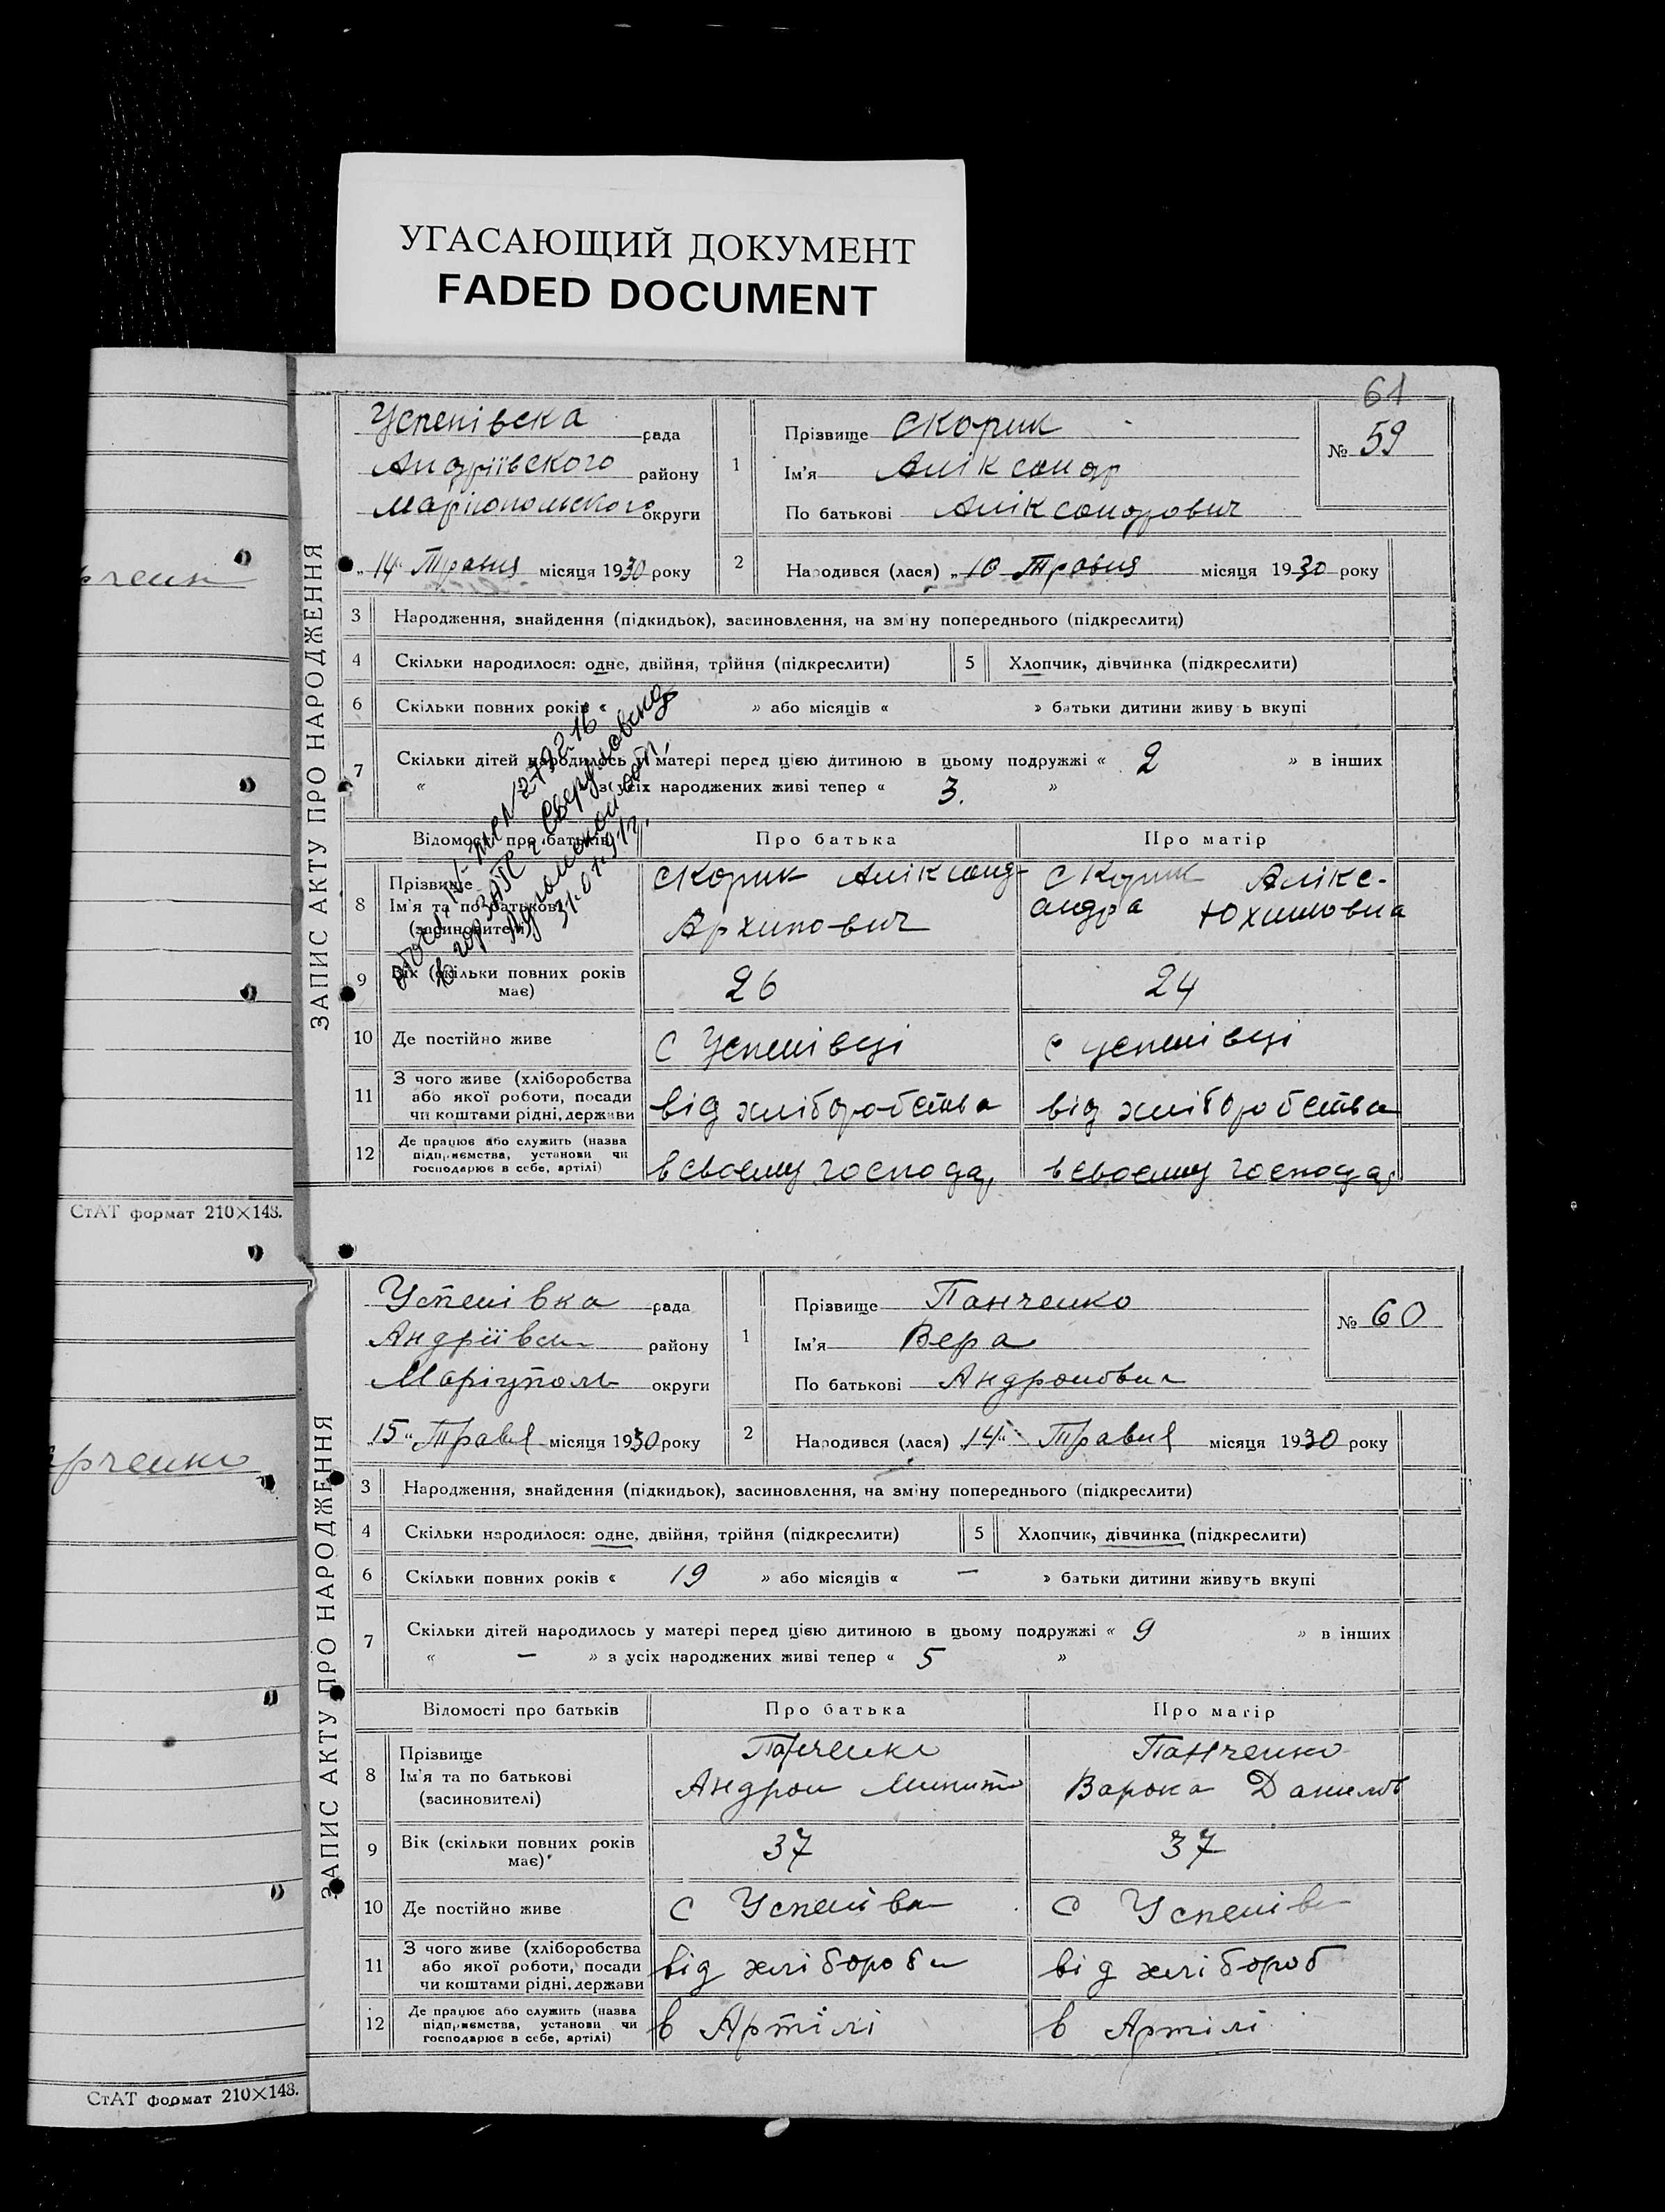 УГАСАЮЩИЙ ДОКУМЕНТ
FADED DOCUMENT
61
ЗАПИС АКТУ ПРО НАРОДЖЕННЯ
Успенівска рада
Андріївского району
Маріюпольского округи
„14“ Травня місяця 1930 року
1 Прізвище Скорик
Ім'я Аліксандр
По батькові Аліксандрович
№ 59
2 Народився (лася) „10 Травня місяця 1930 року
3 Народження, знайдення (підкидьок), засиновлення, на зміну попереднього (підкреслити)
4 Скільки народилося: одне, двійня, трійня (підкреслити) 5 Хлопчик, дівчинка (підкреслити)
6 Скільки повних років « » або місяців « » батьки дитини живуть вкупі
7 Скільки дітей народилось у матері перед цією дитиною в цьому подружжі « 2 » в інших
« з усіх народжених живі тепер « 3. »
Відомості про батьків Про батька Про матір
8 Прізвище
Ім'я та по батькові
(засиновителі)
Скорик Аліксанд
Архипович
Скорик Алікс-
андра Юхимовна
9 Вік (скільки повних років
має)
26 24
10 Де постійно живе С Успенівці С успенівці
11 З чого живе (хліборобства
або якої роботи, посади
чи коштами рідні, держави
від хліборобства від хліборобства
12 Де працює або служить (назва
підприємства, установи чи
господарює в себе, артілі)
в своєму господа, в своєму господа,
31.01.91г.
СтАТ формат 210×148.
ЗАПИС АКТУ ПРО НАРОДЖЕННЯ
Успенівка рада
Андріївськ району
Маріуполь округи
„15“ Травня місяця 1930 року
1 Прізвище Панченко
Ім'я Вера
По батькові Андроновна
№ 60
2 Народився (лася) „14“ Травня місяця 1930 року
3 Народження, знайдення (підкидьок), засиновлення, на зміну попереднього (підкреслити)
4 Скільки народилося: одне, двійня, трійня (підкреслити) 5 Хлопчик, дівчинка (підкреслити)
6 Скільки повних років « 19 » або місяців « — » батьки дитини живуть вкупі
7 Скільки дітей народилось у матері перед цією дитиною в цьому подружжі « 9 » в інших
« — » з усіх народжених живі тепер « 5 »
Відомості про батьків Про батька Про матір
8 Прізвище
Ім'я та по батькові
(засиновителі)
Панченко
Андрон
Панченко
Варока Данилов
9 Вік (скільки повних років
має)
37 37
10 Де постійно живе С Успенівка С Успенівк
11 З чого живе (хліборобства
або якої роботи, посади
чи коштами рідні, держави
від хлібороби від хлібороб
12 Де працює або служить (назва
підприємства, установи чи
господарює в себе, артілі)
в Артілі в Артілі
СтАТ формат 210×148.